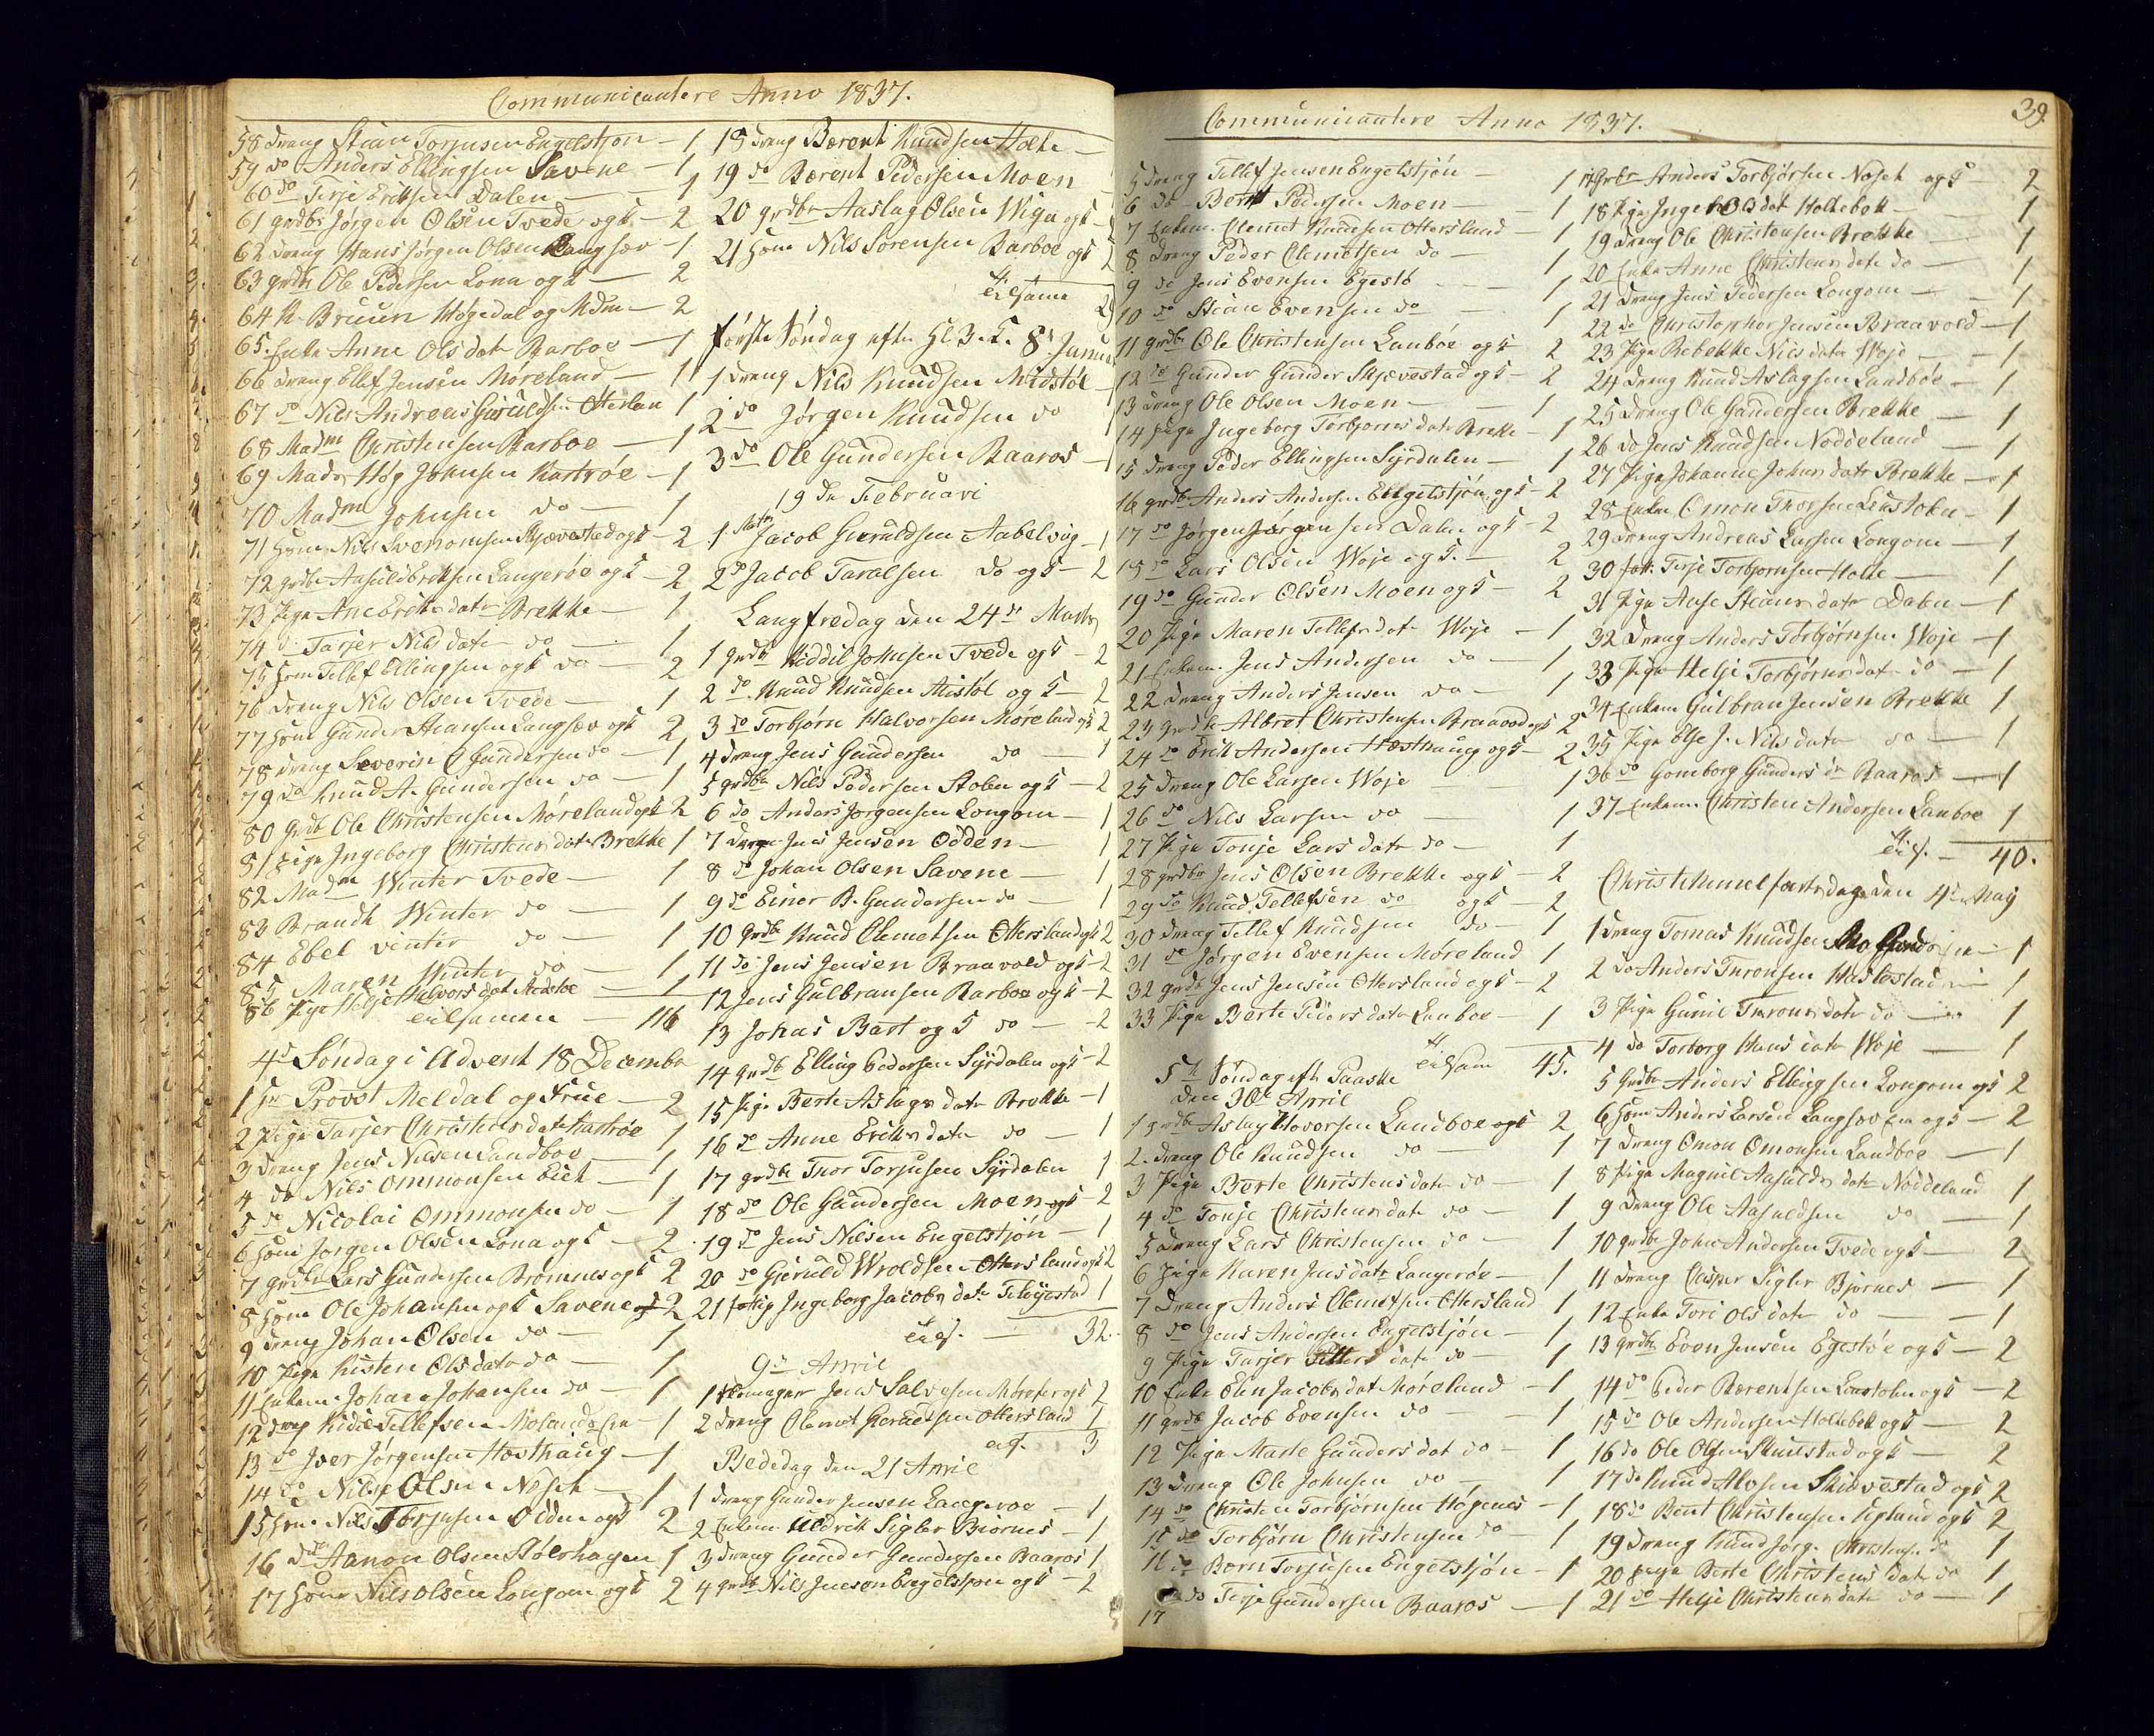 Communicantere Anno 1837.
58 Dreng Stian Torjusen Engelstjon — 1
59 do Anders Ellingsen Savene — 1
60 do Terje Eriksen Dalen — 1
61 grdbr Jørgen Olsen Tvede og K — 2
62 Dreng Hans Jørgen Olsen Langsæv — 1
63 grdbr Ole Pedersen Lona og K — 2
64 H. Bruun Høgedal og Mdm — 2
65 Enke Anne Olsdatr Barboe — 1
66 Dreng Ellef Jensen Møreland — 1
67 do Nils Andreas Gjeruldsen Otterslan 1
68 Madm Christensen Barboe — 1
69 Madm Høg Johnsen Kastrøe — 1
70 Madm Johnsen do — 1
71 Hsm Nils Svenomsen Skjævestad og K — 2
72 grdbr Aasuld Eriksen Langerøe og K — 2
73 Pige Ane Eriksdatr Brekke — 1
74 do Tarjer Nilsdatr do — 1
75 Hsm Tellef Ellingsen og K do — 2
76 Dreng Nils Olsen Tvede — 1
77 Hsm Gunder Stiansen Langsæv og K 2
78 Dreng Severin O Gundersen do — 1
79 do Knud A. Gundersen do — 1
80 Grdb Ole Christensen Møreland og K 2
81 Pige Ingeborg Christensdatr Brekke 1
82 Madm Winter Tvede — 1
83 Brandt Winter do — 1
84 Ebel Vinter do — 1
85 Maren Winter do — 1
86 Pige Helje Halvorsdat — 1
tilsamen — 116
4de Søndag i Advent 18 Decembr
1 Hr Provst Meldal og Frue — 2
2 Pige Tarjer Christensdatr Kastrøe 1
3 Dreng Jens Nilsen Landboe — 1
4 do Nils Ommonsen Eiet — 1
5 do Nicolai Ommonsen do — 1
6 Hsm Jørgen Olsen Lona og K — 2
7 grdbr Lars Gundersen Bromnes og K 2
8 Hsm Ole Johansen og K Savene 2
9 Dreng Johan Olsen do — 1
10 Pige Kisten Olsdatr do — 1
11 Enkem. Johan Johansen do — 1
12 Dreng Kidil Tellefsen — 1
13 do Iver Jørgensen Hæsthaug — 1
14 do Nils Olsen Neset — 1
15 Hsm Nils Torjusen Odden og K 2
16 do Aanon Olsen Stølshagen 1
17 Hsm Nils Olsen Longom og K 2
18 Dreng Berent Knudsen Holte —
19 do Berent Pedersen Moen
20 grdbr Aaslag Olsen Wigu og K —
21 Hsm Nils Sørensen Barboe og K 2
tilsame
første Søndag efter Hl. 3 K. 8de Janua
1 Dreng Nils Knudsen Midstøl —
2 do Jørgen Knudsen do 1
3 do Ole Gundersen Baaros — 1
19 de Februari
1 Matr Jacob Gieruldsen Aabelvig — 1
2 do Jacob Taralsen do og K — 2
Langfredag den 24de Marts
1 grdbr Kiddil Johnsen Tvede og K — 2
2 do Knud Knudsen Mistøl og K — 2
3 do Torbjørn Halvorsen Møreland og K 2
4 Dreng Jens Gundersen do — 1
5 grdbr Nils Pedersen Stolen og K — 2
6 do Anders Jørgensen Longom — 1
7 Dreng Jens Jensen Odden — 1
8 do Johan Olsen Savene — 1
9 do Einer B. Gundersen do — 1
10 Grdbr Knud Clemetsen Ottersland og K 2
11 do Jens Jensen Braavold og K — 2
12 Jens Gulbransen Barboe og K — 2
13 Johas Bast og K do — 2
14 grdb Elling Pedersen Syrdalen og K — 2
15 Pige Berte Aslagsdatr Brekke — 1
16 do Anne Eriksdatr do — 1
17 grdbr Thor Torjusen Syrdalen 1
18 do Ole Gundersen Moen og K — 2
19 do Jens Nilsen Engelstjøn — 1
20 do Gieruld Wroldsen Ottersland og K 2
21 Ingeborg Jacobsdatr 1
tils. — 32.
9de April
1 Jens Salvesen og K 2
2 Dreng Clemet Gerueldsen Ottersland 1
tils. 3
Bededag den 21 April
1 Dreng Gunder Jensen Langerøe — 1
2 Enkem. Uldrik Sigler Biornes — 1
3 Dreng Gunder Gundersen Baaros 1
4 grdb Nils Jensen Engelstjøn og K — 2
Communicantere Anno 1837.
39
5 Dreng Tellef Jensen Engelstjøn — 1
6 do Bernt Pedersen Moen — 1
7 Enkem. Clemet Knudsen Ottersland — 1
8 Dreng Peder Clemetsen do — 1
9 do Jens Evensen Egestø — 1
10 do Stian Evensen do — 1
11 grdbr Ole Christensen Lanboe og K 2
12 do Gunder Gunder Skjævestad og K — 2
13 Dreng Ole Olsen Moen — 1
14 Pige Ingeborg Torbjørnsdatr Brekke — 1
15 Dreng Peder Ellingsen Syrdalen — 1
16 grdbr Anders Andersen Engelstjøn og K — 2
17 do Jørgen Jørgensen Dalen og K — 2
18 do Lars Olsen Woje og K. — 2
19 do Gunder Olsen Moen og K — 2
20 Pige Maren Tellefsdatr Woje — 1
21 Enkem. Jens Andersen do — 1
22 Dreng Anders Jensen do — 1
23 grdbr Albret Christensen Braavold og K 2
24 do Erik Andersen Hæsthaug og K — 2
25 Dreng Ole Larsen Woje — 1
26 do Nils Larsen do — 1
27 Pige Tonje Larsdatr do — 1
28 grdbr Jens Olsen Brekke og K — 2
29 do Knud Tellefsen do og K — 2
30 Dreng Tellef Knudsen do — 1
31 do Jørgen Evensen Møreland 1
32 grdb Jens Jensen Ottersland og K — 2
33 Pige Berte Pedersdatr Lanboe — 1
tilsam 45.
5te Søndag eft. Paaske
den 30te April
1 grdbr Aslag Hovorsen Landboe og K 2
2 Dreng Ole Knudsen do — 1
3 Pige Berte Christensdatr do — 1
4 do Tonje Christensdatr do — 1
5 Dreng Lars Christensen do — 1
6 Pige Karen Jensdatr Langerøe — 1
7 Dreng Anders Clemetsen Ottersland 1
8 do Jens Andersen Engelstjøn — 1
9 Pige Tarjer datr do — 1
10 Enke Elen Jacobsdat Møreland — 1
11 grdb Jacob Evensen do — 1
12 Pige Marte Gundersdat do — 1
13 Dreng Ole Johnsen do — 1
14 do Christen Torbjørnsen Høgenes — 1
15 do Torbjørn Christensen do — 1
16 do Børn Torjusen Engelstjøn — 1
17 do Terje Gundersen Baaros — 1
17 Grbr Anders Torbjørsen Neset og K 2
18 Pige Ingeb Olsdat Holtebek — 1
19 Dreng Ole Christensen Brekke — 1
20 Enke Anne Christensdatr do — 1
21 Dreng Jens Pedersen Longom — 1
22 do Christopher Jensen Braavold — 1
23 Pige Rebekke Nilsdatr Woje — 1
24 Dreng Knud Aslagsen Landbøe — 1
25 Dreng Ole Gundersen Brekke — 1
26 do Jens Knudsen Noddeland — 1
27 Pige Johanne Johnsdatr Brekke — 1
28 Enkm Omon Thorsen — 1
29 Dreng Andreas Larsen Longom — 1
30 Terje Torbjørnsen Holte — 1
31 Pige Aase Stiansdatr Dalen — 1
32 Dreng Anders Torbjørnsen Woje — 1
33 Pige Helje Torbjørnsdat do — 1
34 Enkem Gulbran Jensen Brekke 1
35 Pige Else J. Nilsdatr do — 1
36 do Gomborg Gundersdr Baaros — 1
37 Enkem. Christen Andersen Lanboe 1
tils. — 40.
Christihimelfartsdag den 4de May
1 Dreng Tomas Knudsen — 1
2 do Anders Tnronsen — 1
3 Pige Gunil Tnronsdatr do — 1
4 do Torborg Hansdatr Woje — 1
5 Grdbr Anders Ellingsen Longom og K 2
6 Hsm Anders Larsen Langsæv og K — 2
7 Dreng Omon Omonsen Landboe — 1
8 Pige Magnil Aasuldsdatr Noddeland 1
9 Dreng Ole Aasuldsen do — 1
10 grdbr John Andersen Tvede og K — 2
11 Dreng Casper Sigler Bjørnes — 1
12 Enke Tori Olsdatr do — 1
13 grdbr Even Jensen Egestøe og K — 2
14 do Peder Berentsen og K — 2
15 do Ole Andersen Holtebek og K — 2
16 do Ole Olsen og K — 2
17 do Knud Alvsen Skiævestad og K 2
18 do Bent Christensen og K 2
19 Dreng Knud Jørg. Christensen do 1
20 Pige Berte Christensdatr do 1
21 do Helje Christensdatr do — 1